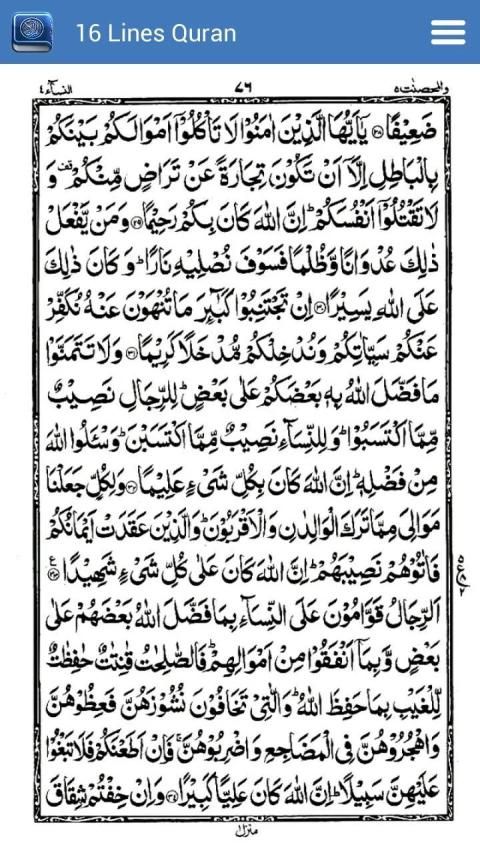 16 Lines Quran
والمحصنٰت ٥
٧٦
النسآء ٤
ضَعِيْفًا ۝٢٨ يٰۤاَيُّهَا الَّذِيْنَ اٰمَنُوْا لَا تَاْكُلُوْۤا اَمْوَالَكُمْ بَيْنَكُمْ
بِالْبَاطِلِ اِلَّاۤ اَنْ تَكُوْنَ تِجَارَةً عَنْ تَرَاضٍ مِّنْكُمْ وَ
لَا تَقْتُلُوْۤا اَنْفُسَكُمْ ؕ اِنَّ اللّٰهَ كَانَ بِكُمْ رَحِيْمًا ۝٢٩ وَمَنْ يَّفْعَلْ
ذٰلِكَ عُدْوَانًا وَّظُلْمًا فَسَوْفَ نُصْلِيْهِ نَارًا ؕ وَكَانَ ذٰلِكَ
عَلَى اللّٰهِ يَسِيْرًا ۝٣٠ اِنْ تَجْتَنِبُوْا كَبَآئِرَ مَا تُنْهَوْنَ عَنْهُ نُكَفِّرْ
عَنْكُمْ سَيِّاٰتِكُمْ وَنُدْخِلْكُمْ مُّدْخَلًا كَرِيْمًا ۝٣١ وَلَا تَتَمَنَّوْا
مَا فَضَّلَ اللّٰهُ بِهٖ بَعْضَكُمْ عَلٰى بَعْضٍ ؕ لِلرِّجَالِ نَصِيْبٌ
مِّمَّا اكْتَسَبُوْا ؕ وَلِلنِّسَآءِ نَصِيْبٌ مِّمَّا اكْتَسَبْنَ ؕ وَسْئَلُوا اللّٰهَ
مِنْ فَضْلِهٖ ؕ اِنَّ اللّٰهَ كَانَ بِكُلِّ شَىْءٍ عَلِيْمًا ۝٣٢ وَلِكُلٍّ جَعَلْنَا
مَوَالِىَ مِمَّا تَرَكَ الْوَالِدٰنِ وَالْاَقْرَبُوْنَ ؕ وَالَّذِيْنَ عَقَدَتْ اَيْمَانُكُمْ
فَاٰتُوْهُمْ نَصِيْبَهُمْ ؕ اِنَّ اللّٰهَ كَانَ عَلٰى كُلِّ شَىْءٍ شَهِيْدًا ۝٣٣
اَلرِّجَالُ قَوَّامُوْنَ عَلَى النِّسَآءِ بِمَا فَضَّلَ اللّٰهُ بَعْضَهُمْ عَلٰى
بَعْضٍ وَّبِمَاۤ اَنْفَقُوْا مِنْ اَمْوَالِهِمْ ؕ فَالصّٰلِحٰتُ قٰنِتٰتٌ حٰفِظٰتٌ
لِّلْغَيْبِ بِمَا حَفِظَ اللّٰهُ ؕ وَالّٰتِىْ تَخَافُوْنَ نُشُوْزَهُنَّ فَعِظُوْهُنَّ
وَاهْجُرُوْهُنَّ فِى الْمَضَاجِعِ وَاضْرِبُوْهُنَّ ۚ فَاِنْ اَطَعْنَكُمْ فَلَا تَبْغُوْا
عَلَيْهِنَّ سَبِيْلًا ؕ اِنَّ اللّٰهَ كَانَ عَلِيًّا كَبِيْرًا ۝٣٤ وَاِنْ خِفْتُمْ شِقَاقَ
منزل ١